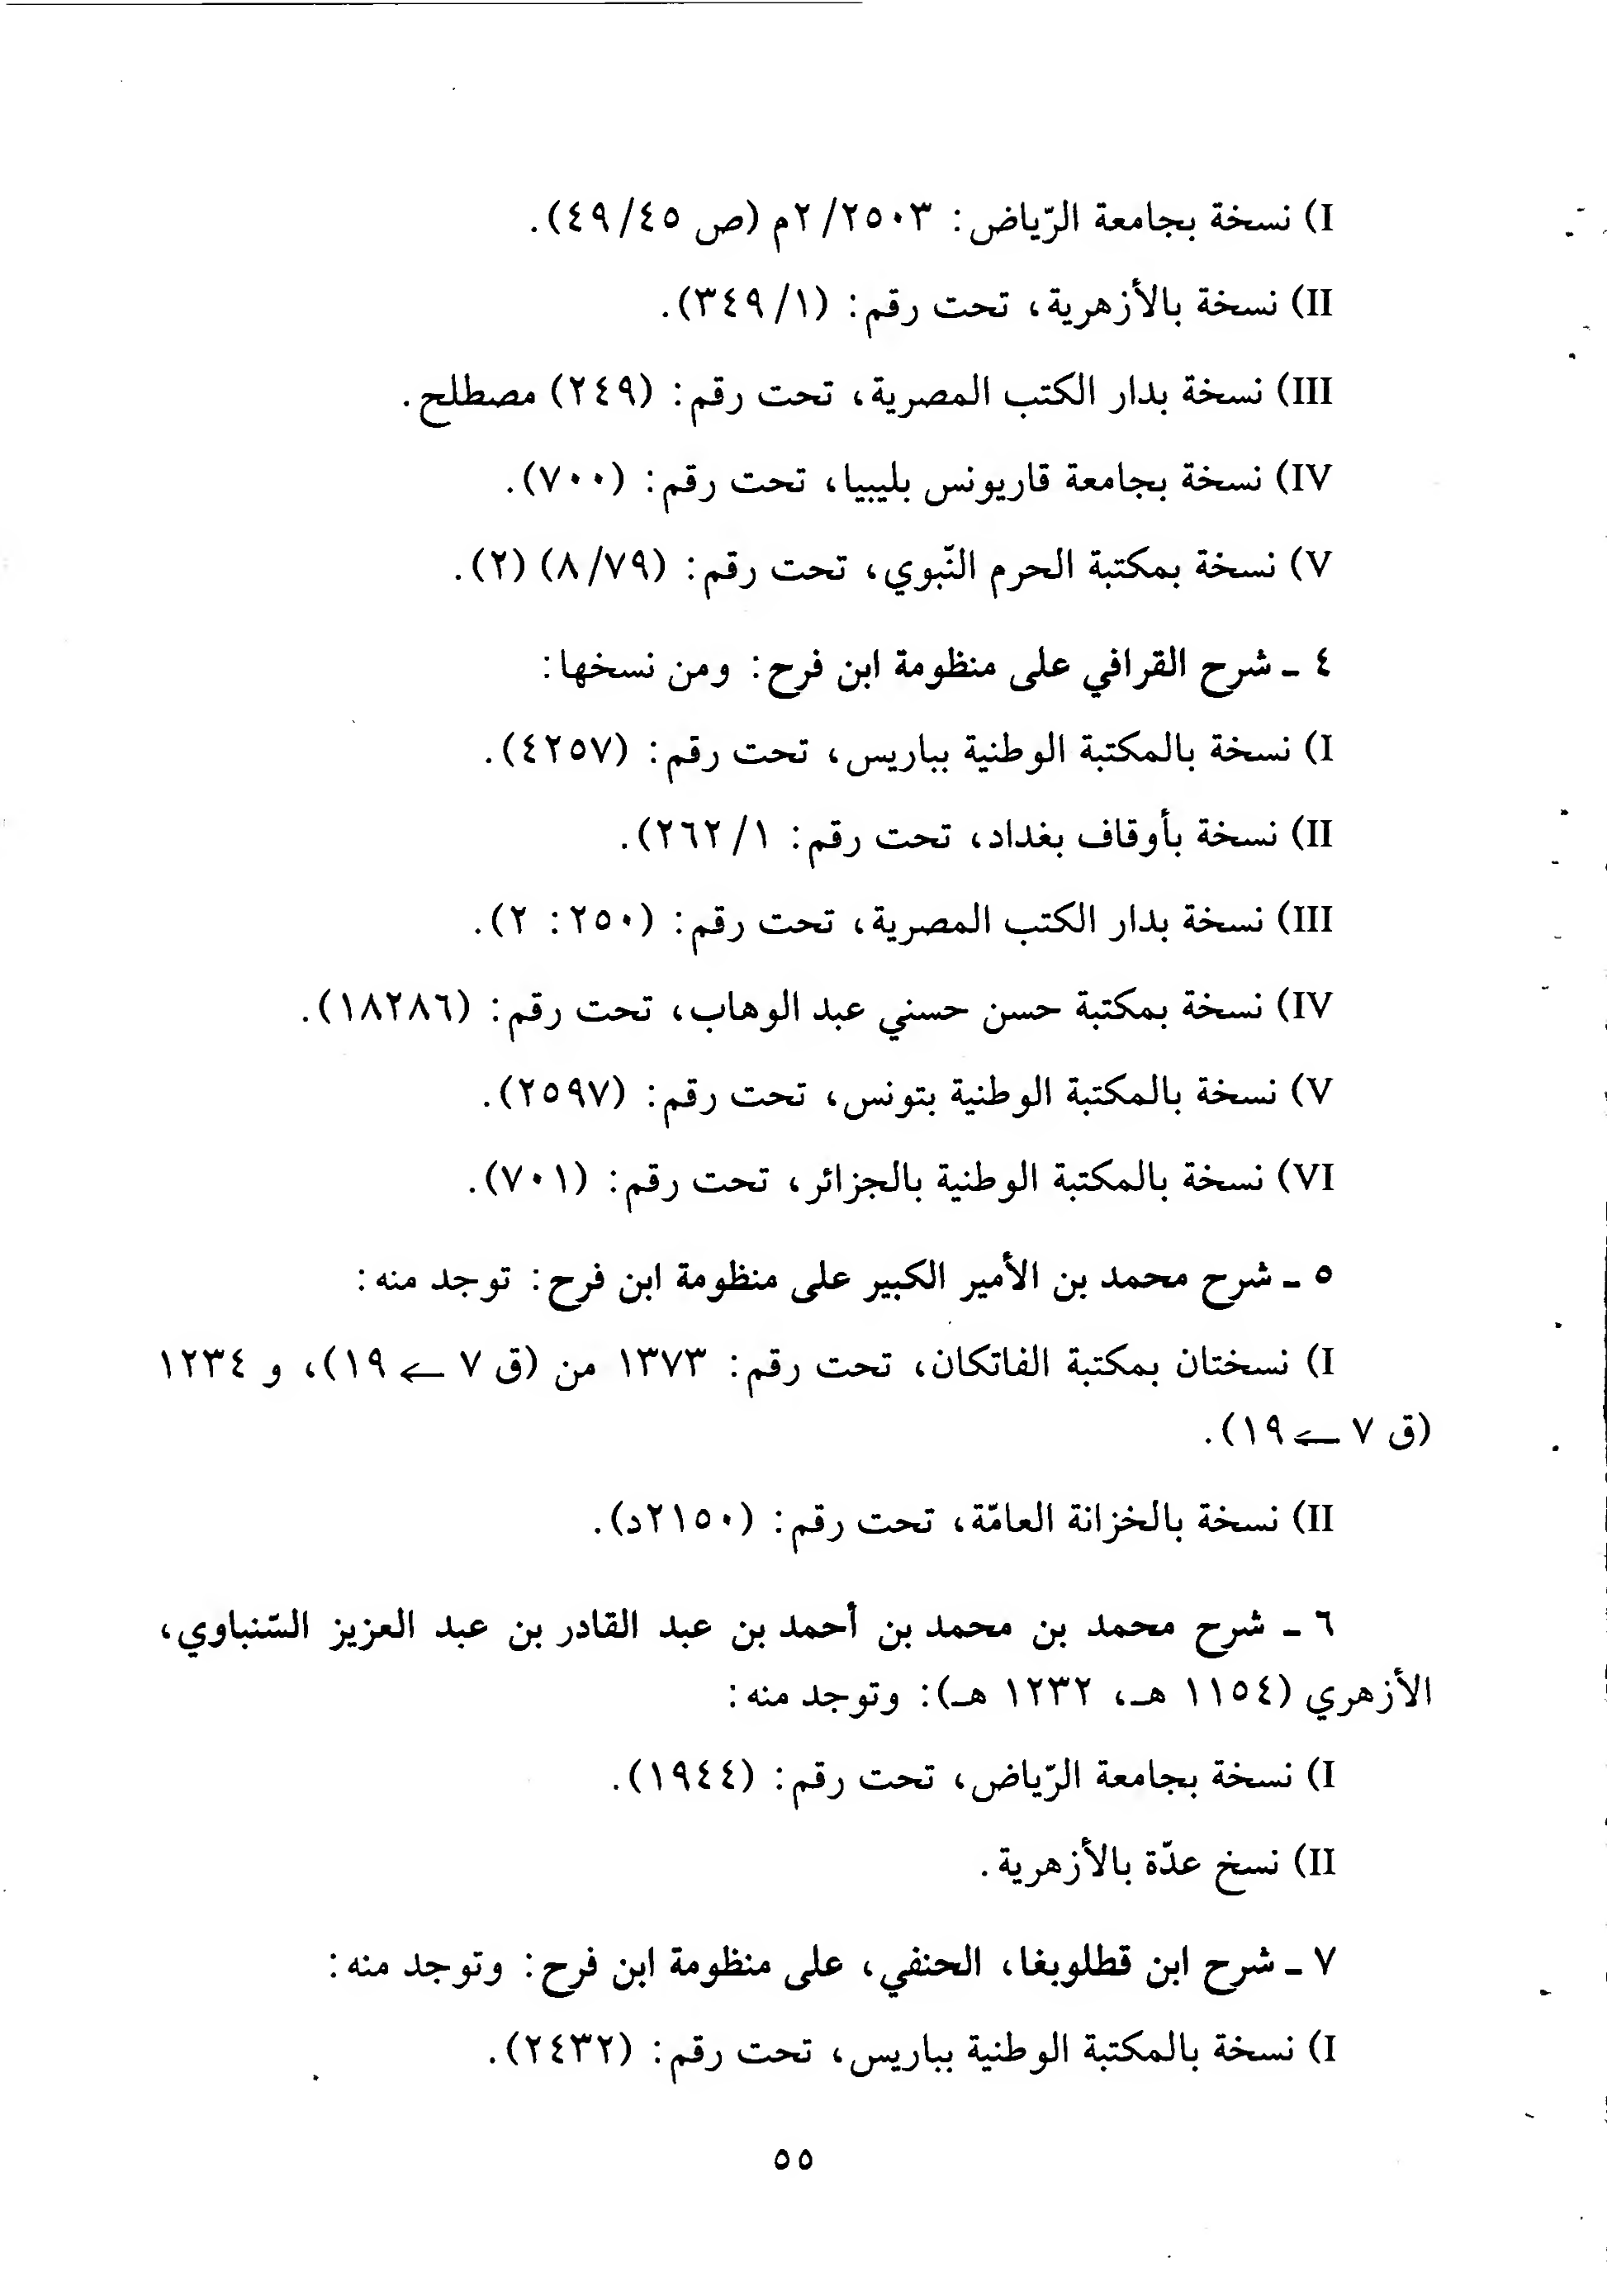 I) نسخة بجامعة الرّياض: ٢/٢٥٠٣م (ص ٤٩/٤٥).
II) نسخة بالأزهرية، تحت رقم: (٣٤٩/١).
III) نسخة بدار الكتب المصرية، تحت رقم: (٢٤٩) مصطلح.
IV) نسخة بجامعة قاريونس بليبيا، تحت رقم: (٧٠٠).
V) نسخة بمكتبة الحرم النّبوي، تحت رقم: (٨/٧٩) (٢).
٤ ـ شرح القرافي على منظومة ابن فرح: ومن نسخها:
I) نسخة بالمكتبة الوطنية بباريس، تحت رقم: (٤٢٥٧).
II) نسخة بأوقاف بغداد، تحت رقم: ٢٦٢/١).
III) نسخة بدار الكتب المصرية، تحت رقم: (٢٥٠: ٢).
IV) نسخة بمكتبة حسن حسني عبد الوهاب، تحت رقم: (١٨٢٨٦).
V) نسخة بالمكتبة الوطنية بتونس، تحت رقم: (٢٥٩٧).
VI) نسخة بالمكتبة الوطنية بالجزائر، تحت رقم: (٧٠١).
٥ ـ شرح محمد بن الأمير الكبير على منظومة ابن فرح: توجد منه:
I) نسختان بمكتبة الفاتكان، تحت رقم: ١٣٧٣ من (ق ٧ ← ١٩)، و ١٢٣٤
(ق ٧ ← ١٩).
II) نسخة بالخزانة العامّة، تحت رقم: (٢١٥٠د).
٦ ـ شرح محمد بن محمد بن أحمد بن عبد القادر بن عبد العزيز السّنباوي،
الأزهري (١١٥٤ هـ، ١٢٣٢ هـ): وتوجد منه:
I) نسخة بجامعة الرّياض، تحت رقم: (١٩٤٤).
II) نسخ عدّة بالأزهرية.
٧ ـ شرح ابن قطلوبغا، الحنفي، على منظومة ابن فرح: وتوجد منه:
I) نسخة بالمكتبة الوطنية بباريس، تحت رقم: (٢٤٣٢).
٥٥